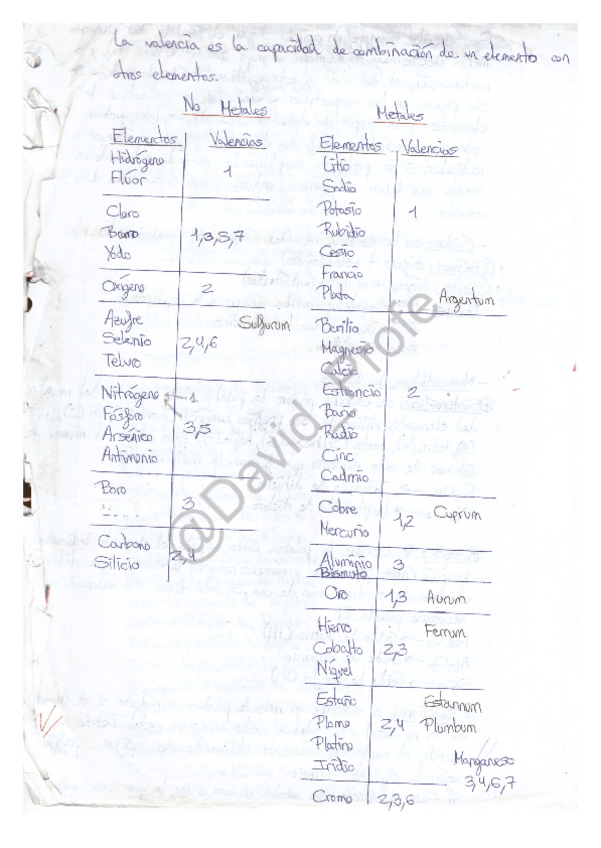 La valencia es la capacidad de combinación de un elemento con
otros elementos.
No Metales
Elementos Valencias
Hidrógeno
Flúor
1
Cloro
Bromo
Yodo
1,3,5,7
Oxígeno 2
Azufre Sulfurum
Selenio
Teluro
2,4,6
Nitrógeno 1
Fósforo
Arsénico
Antimonio
3,5
Boro
3
Carbono
Silicio
2,4
Metales
Elementos Valencias
Litio
Sodio
Potasio 1
Rubidio
Cesio
Francio
Plata Argentum
Berilio
Magnesio
Calcio
Estroncio 2
Bario
Radio
Cinc
Cadmio
Cobre Cuprum
Mercurio
1,2
Aluminio 3
Bismuto
Oro 1,3 Aurum
Hierro Ferrum
Cobalto 2,3
Níquel
Estaño Estannum
Plomo 2,4 Plumbum
Platino
Iridio
Manganeso
3,4,6,7
Cromo 2,3,6
@David_Profe